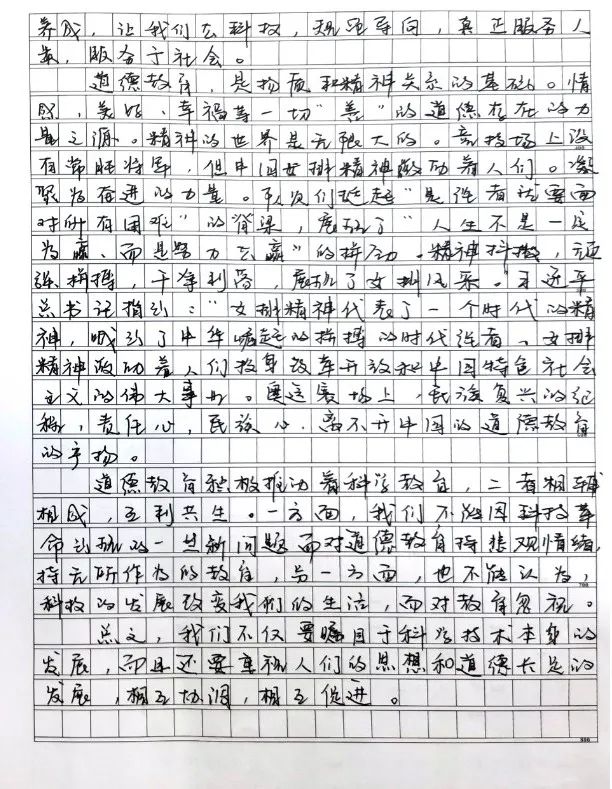 养成，让我们在科技，规范导向，真正服务人
类，服务于社会。
道德教育，是物质和精神关系的基础。情
照，美好、幸福等一切"善"的道德存在的力
量之源。精神的世界是无限大的。竞技场上没
有常胜将军，但中国女排精神激励着人们。凝
聚为奋进的力量。队员们挺起"是强者就要面
对所有困难"的脊梁，展现了"人生不是一定
为赢，而是努力去赢"的拼劲。精神抖擞，顽
强拼搏，干净利落，展现了女排风采。习近平
总书记指引："女排精神代表了一个时代的精
神，吹引了中华崛起的拼搏的时代强音。女排
精神激励着人们投身改革开放和中国特色社会
主义的伟大事业。奥运赛场上，民族复兴的征
程，责任心，民族心，离不开中国的道德教育
的产物。
道德教育积极推动着科学教育，二者相辅
相成，互利共生。一方面，我们不能因科技革
命出现的一些新问题而对道德教育持悲观情绪，
持无所作为的教育，另一方面，也不能认为，
科技的发展改变我们的生活，而对教育忽视。
总之，我们不仅要瞩目于科学技术本身的
发展，而且还要重视人们的思想和道德长足的
发展，相互协调，相互促进。
700
800